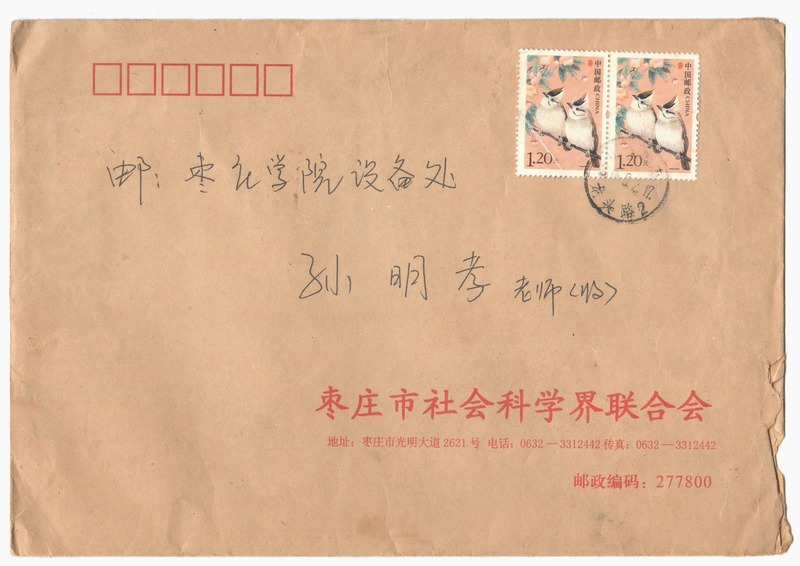 中国邮政 CHINA
1.20元
中国邮政 CHINA
1.20元
邮：枣庄学院设备处
孙明孝老师〈收〉
路2
枣庄市社会科学界联合会
地址：枣庄市光明大道2621号 电话：0632—3312442 传真：0632—3312442
邮政编码：277800